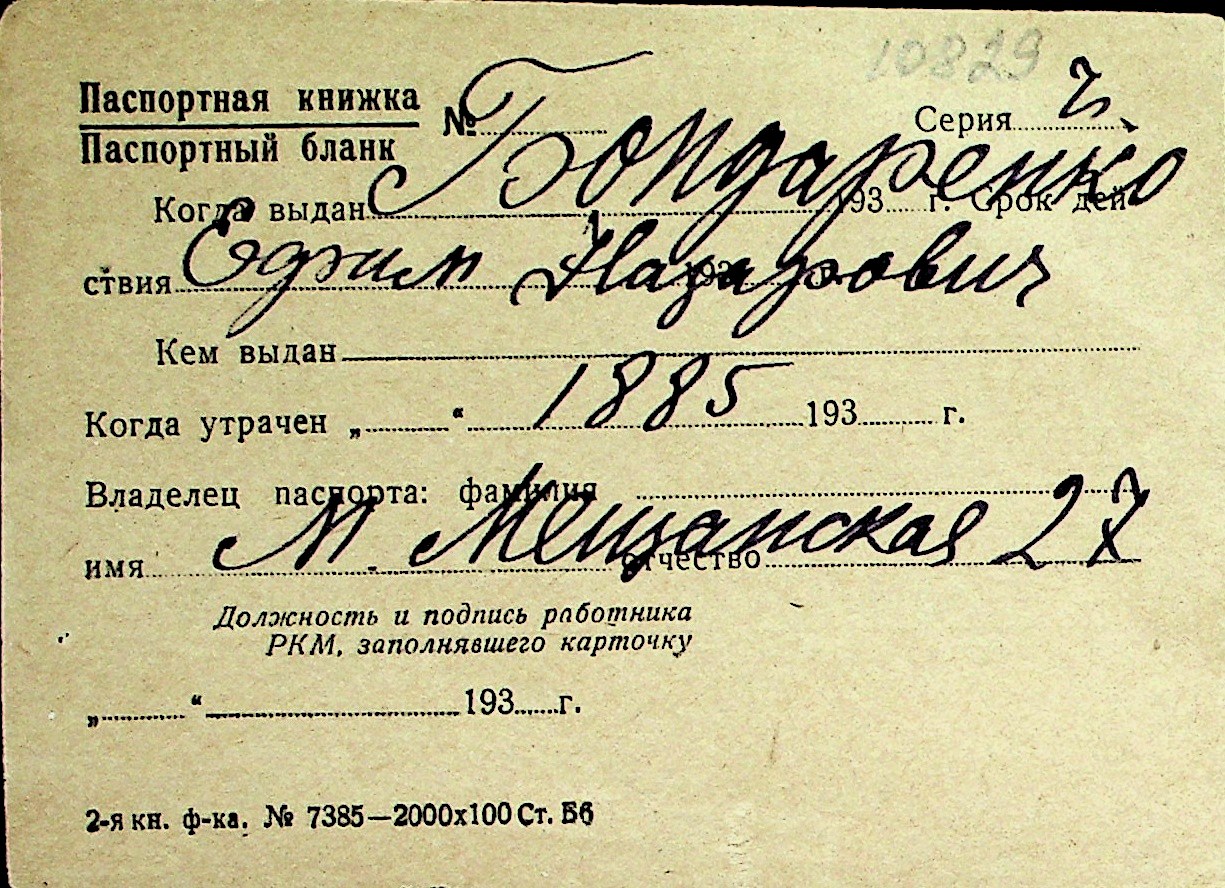 10829
Паспортная книжка
Паспортный бланк
№ Серия
Бондаренко
Когда выдан 193 г. Срок дей
ствия 193 г.
Ефим Назарович
Кем выдан
1885
Когда утрачен „ “ 193 г.
Владелец паспорта: фамилия
М. Мещанская 27
имя отчество
Должность и подпись работника
РКМ, заполнявшего карточку
„ “ 193 г.
2-я кн. ф-ка. № 7385—2000х100 Ст. Б6